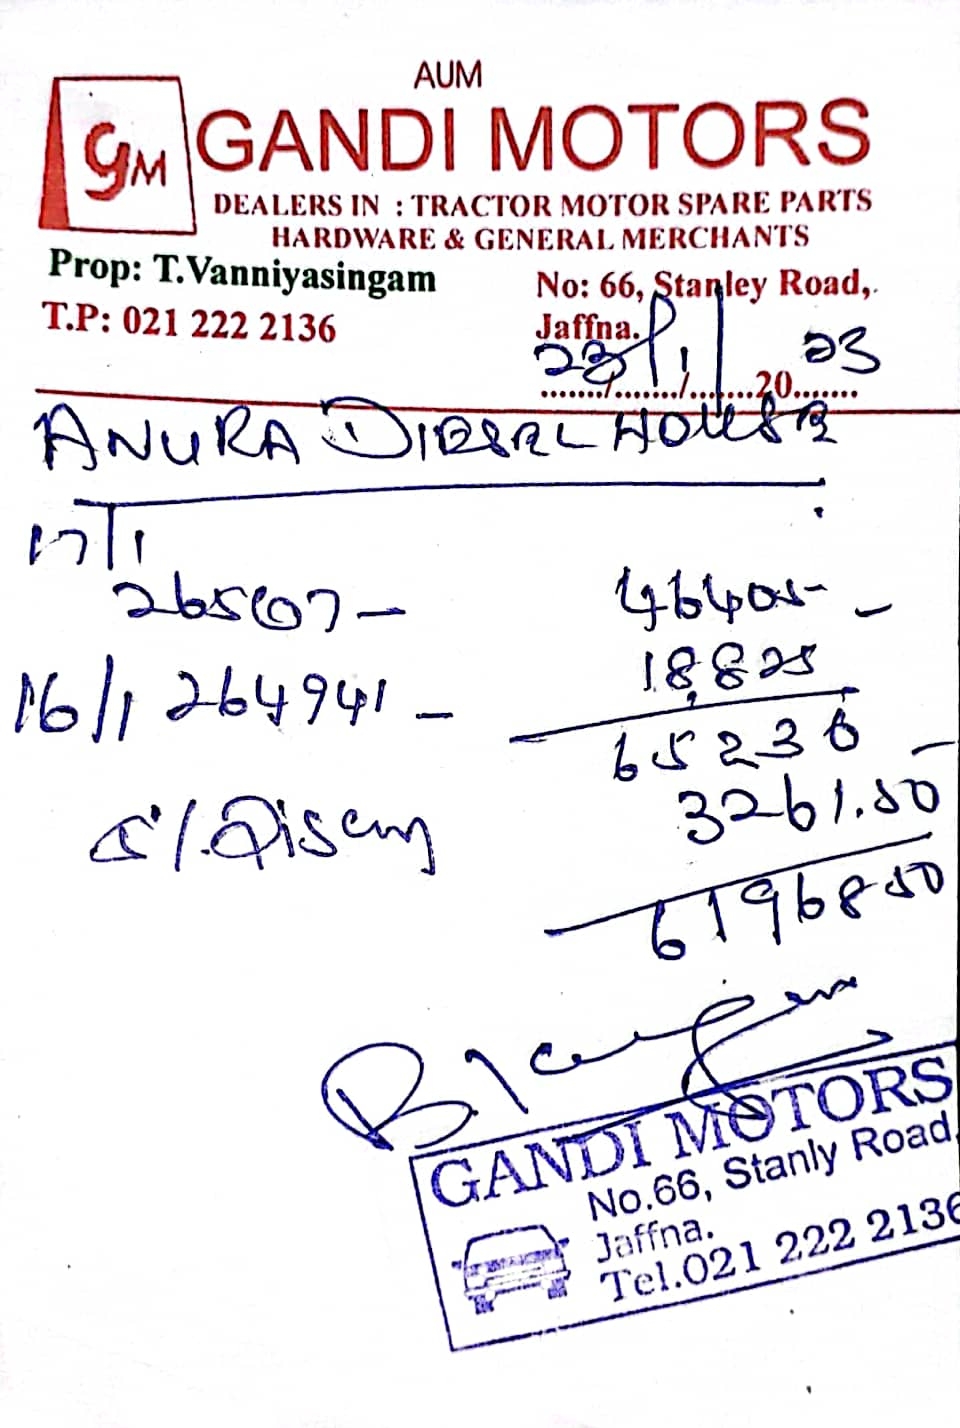 AUM
GM GANDI MOTORS
DEALERS IN : TRACTOR MOTOR SPARE PARTS
HARDWARE & GENERAL MERCHANTS
Prop: T.Vanniyasingam
T.P: 021 222 2136
No: 66, Stanley Road,
Jaffna.
23/1/2023
ANURA DIESEL HOUSE
- 46405 -
16/1 264941 - 18,825
65236 -
3261.50
61968.50
GANDI MOTORS
No.66, Stanly Road,
Jaffna.
Tel.021 222 2136